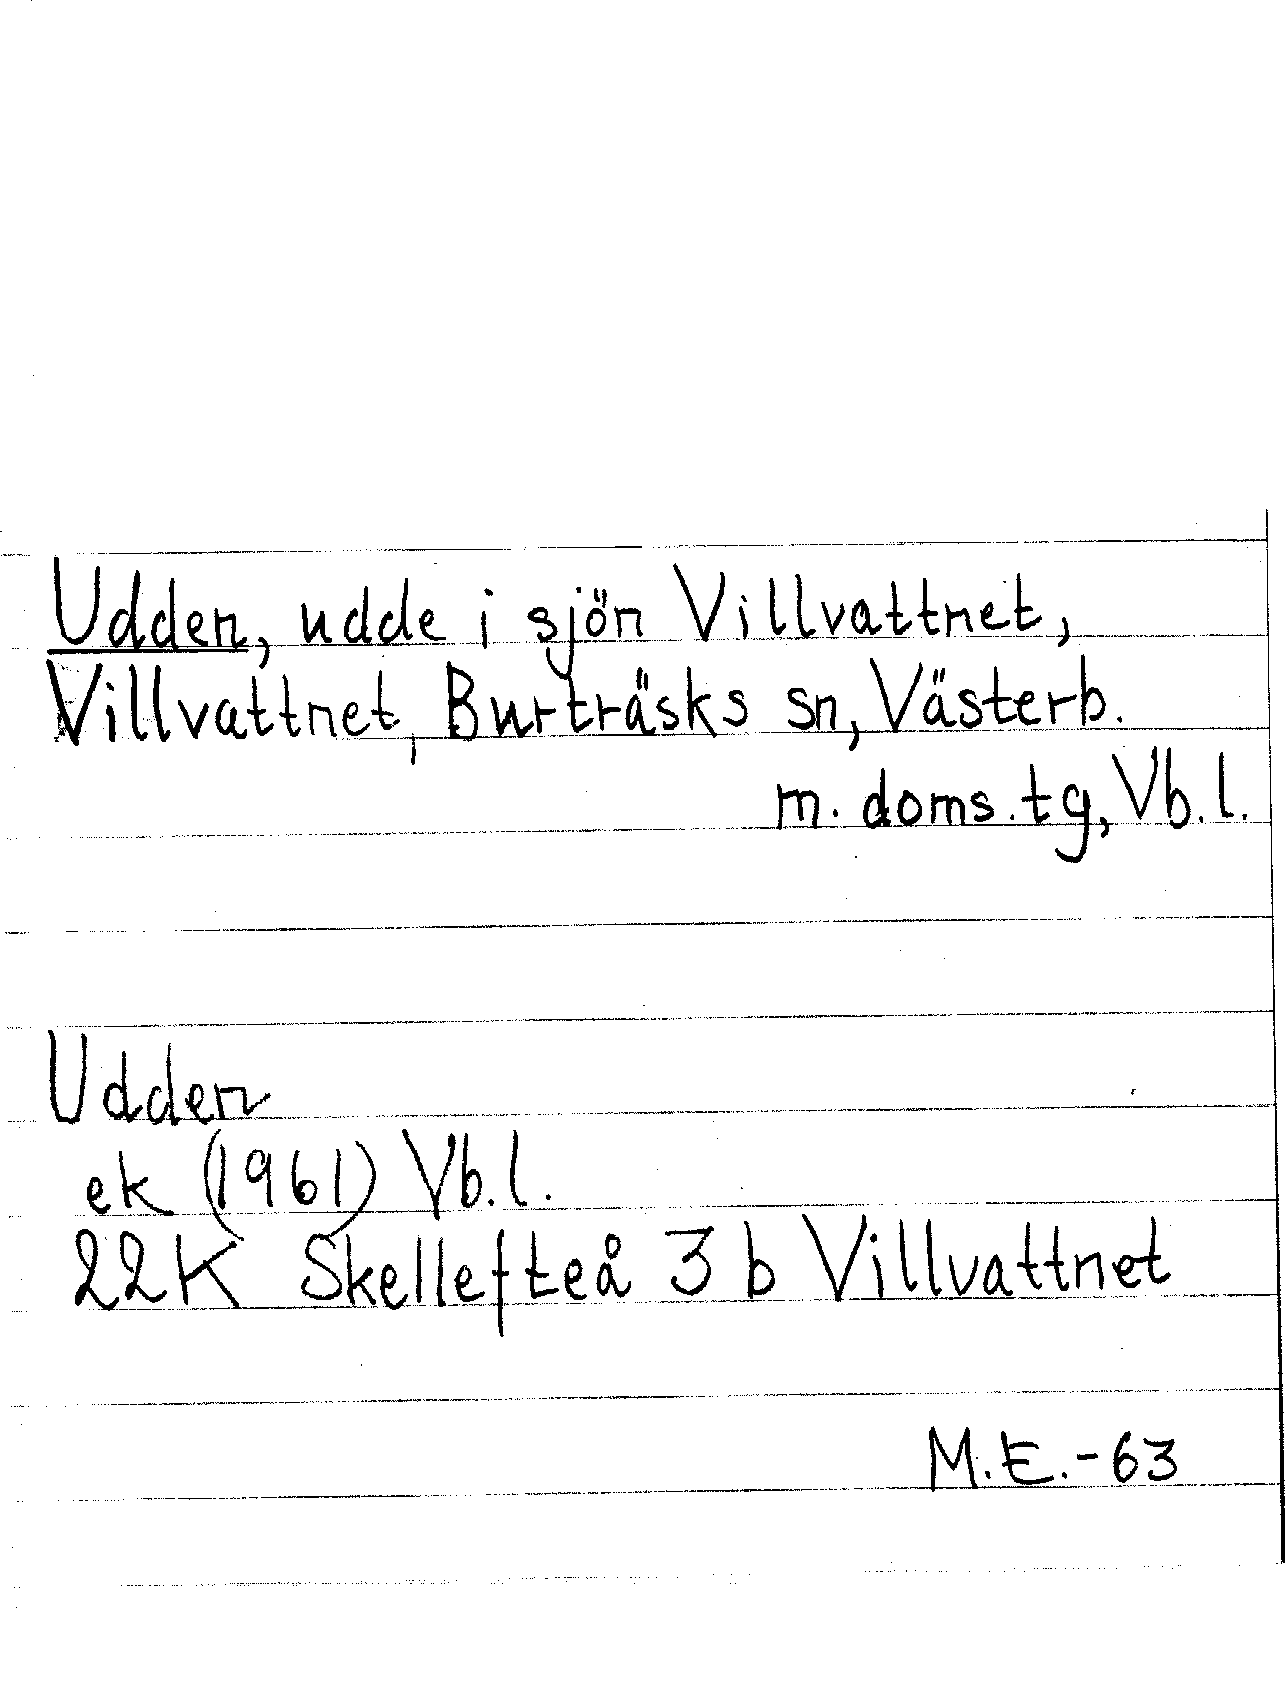 Udden, udde i sjön Villvattnet,
Villvattnet, Burträsks sn, Västerb.
m. doms. tg, Vb. l.
Udden
ek (1961) Vb. l.
22K Skellefteå 3 b Villvattnet
M.E.-63